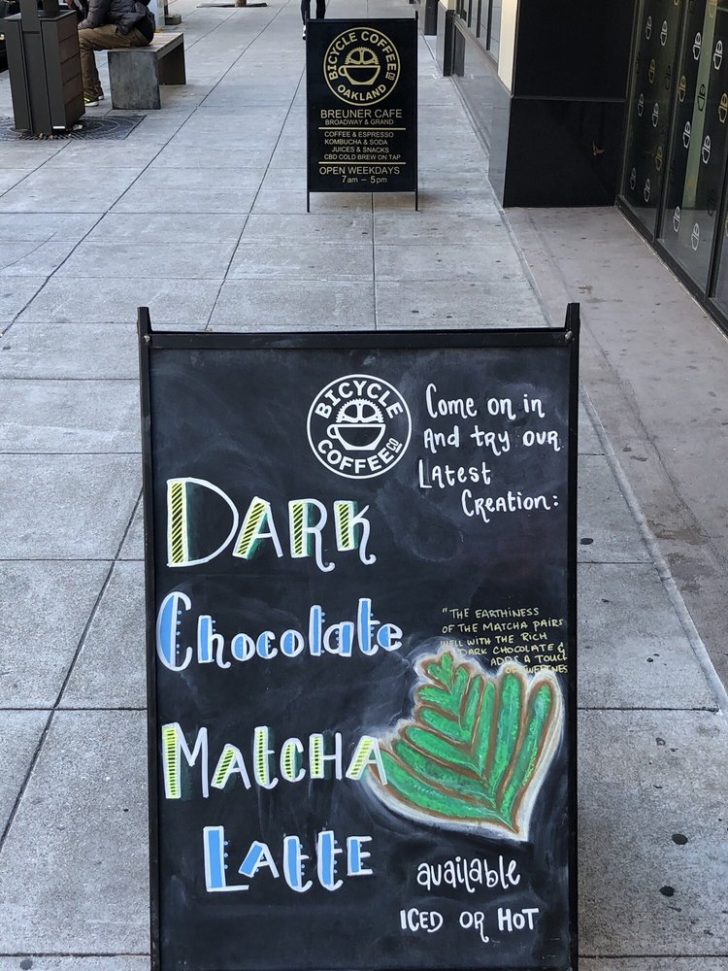 BICYCLE COFFEE CO
OAKLAND
BREUNER CAFE
BROADWAY & GRAND
COFFEE & ESPRESSO
KOMBUCHA & SODA
JUICES & SNACKS
CBD COLD BREW ON TAP
OPEN WEEKDAYS
7am - 5pm
BICYCLE
COFFEE CO
Come on in
And try our
Latest
Creation:
DARK
Chocolate
"THE EARTHINESS
OF THE MATCHA PAIRS
WELL WITH THE RICH
DARK CHOCOLATE &
ADDS A TOUCH
OF
MATCHA
LATTE
available
ICED OR HOT